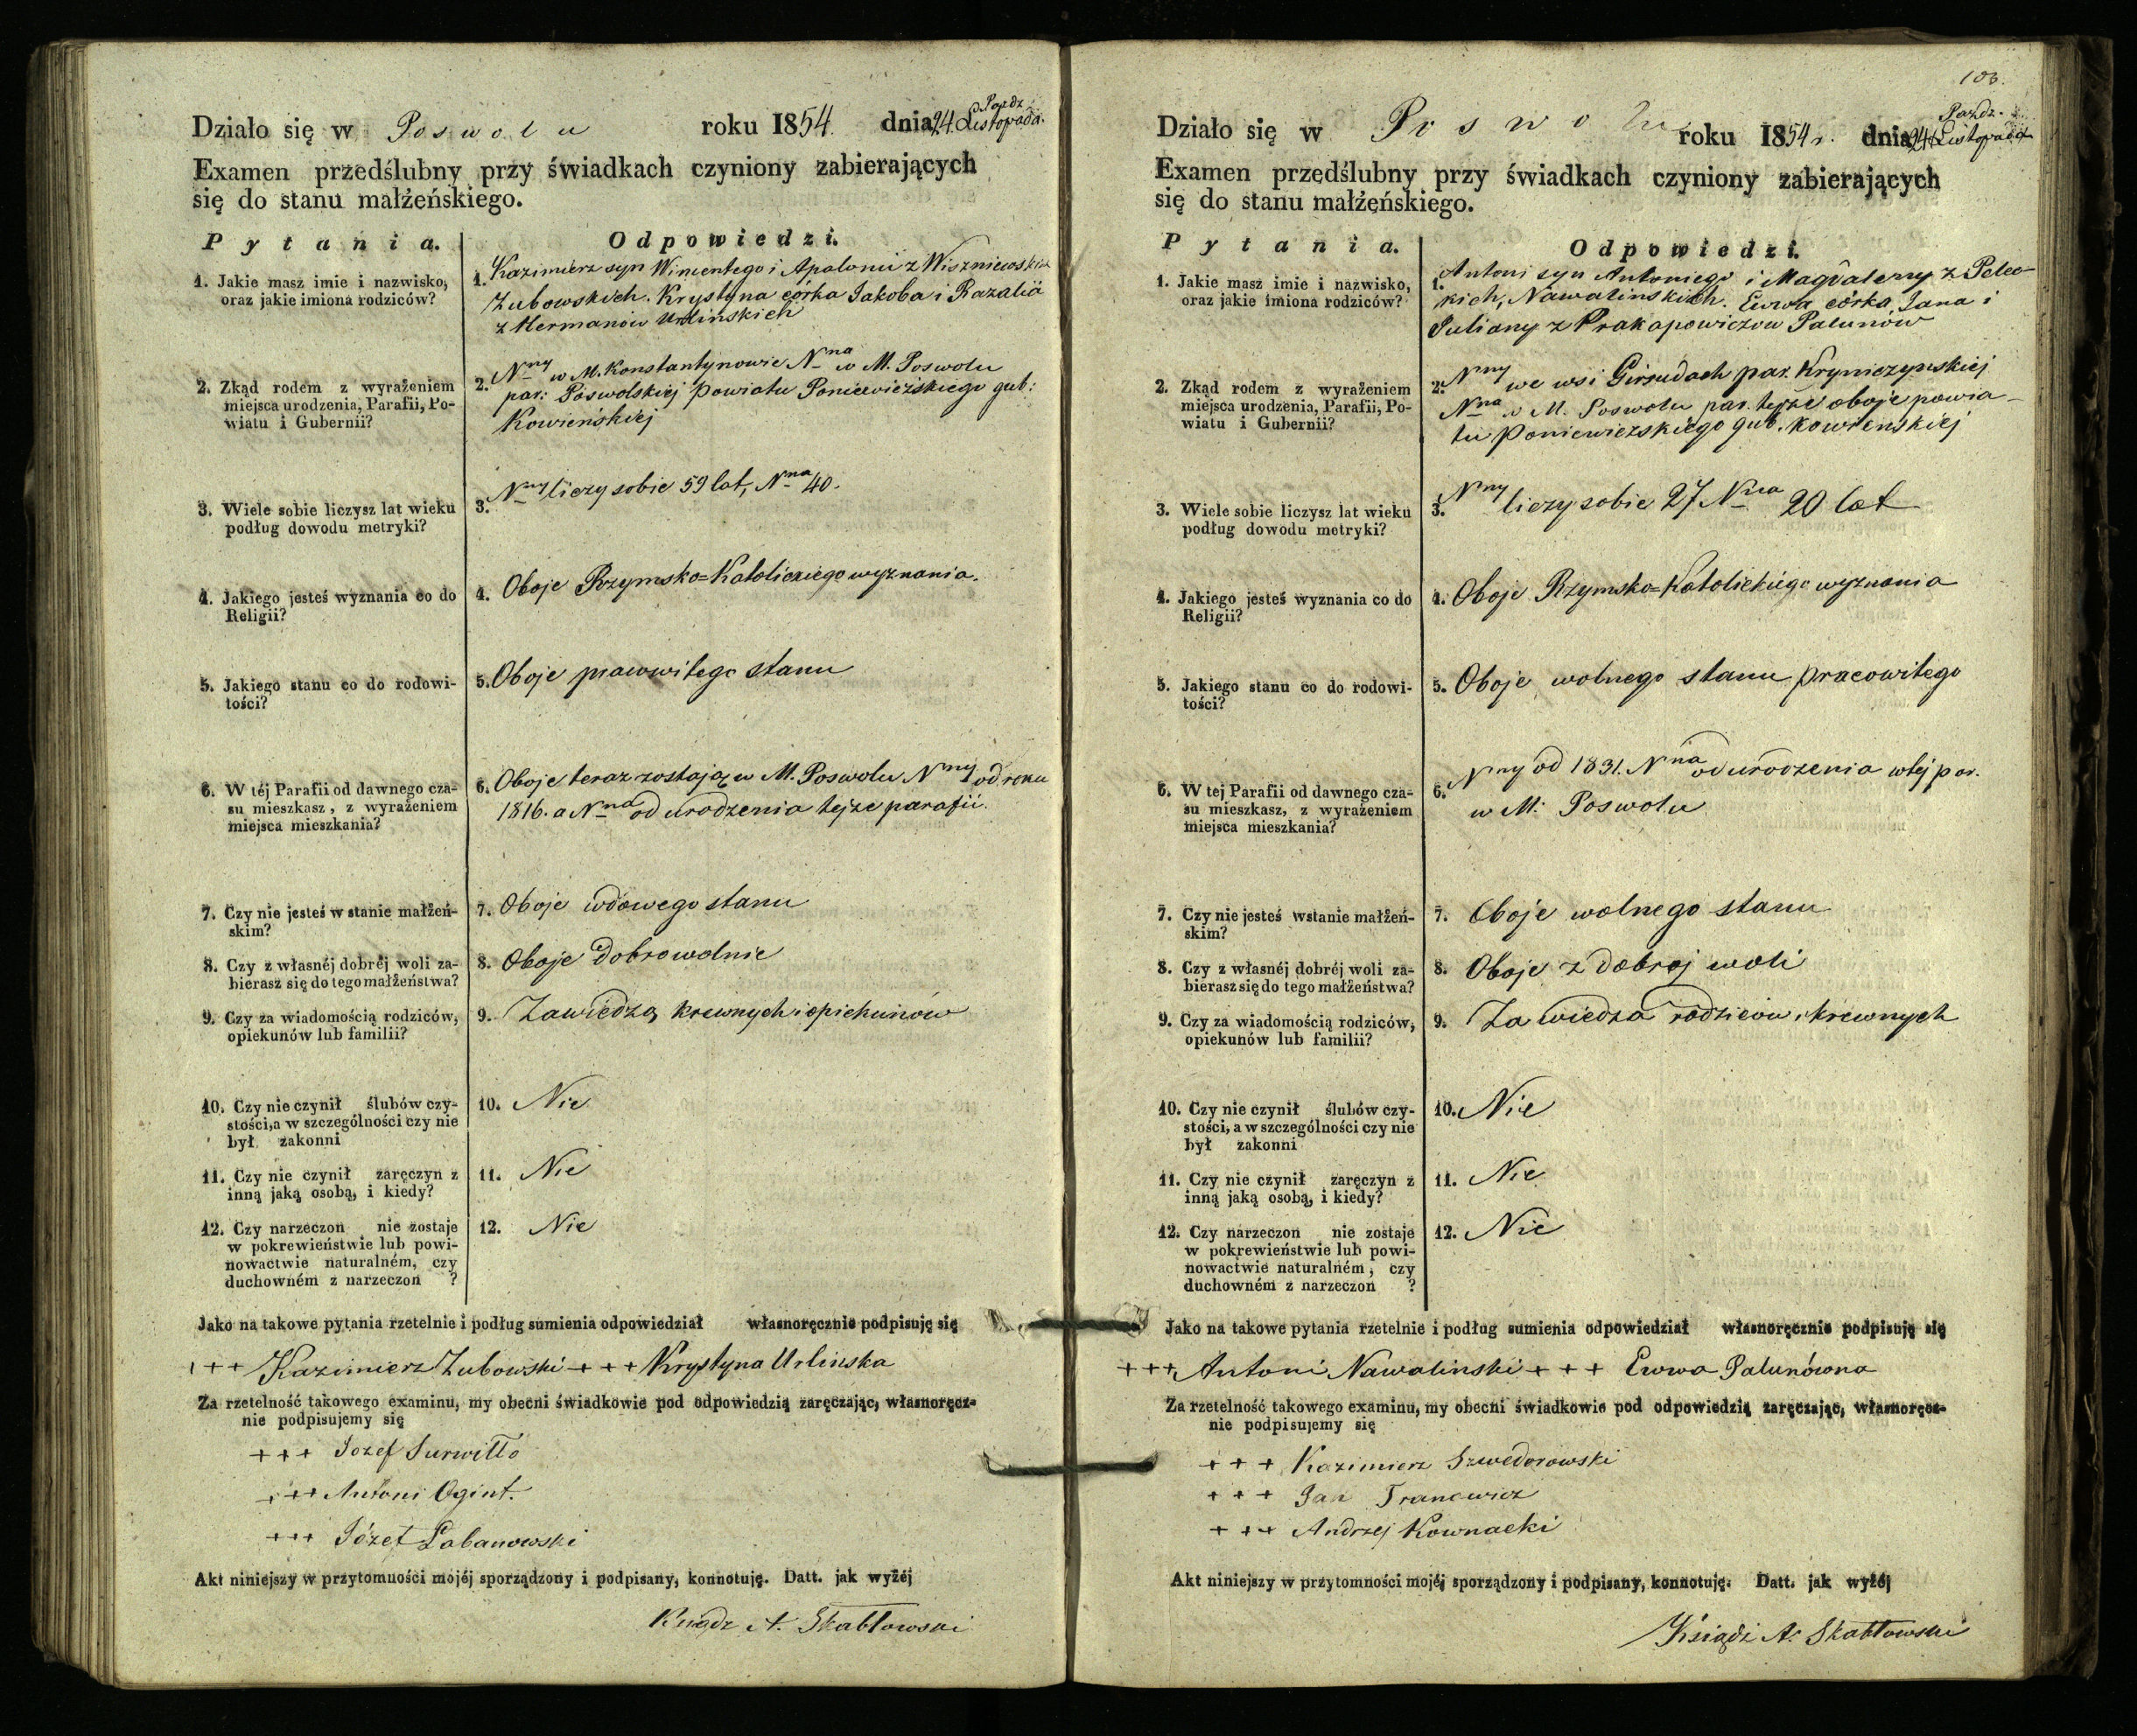 Działo się w Poswolu roku 1854. dnia 24 Listopada.
Pazdz
Examen przedślubny przy świadkach czyniony zabierających
się do stanu małżeńskiego.
Pytania. Odpowiedzi.
1. Jakie masz imie i nazwisko,
oraz jakie imiona rodziców?
1. Kazimierz syn Wincentego i Apolonii z Wiszniewskich
Zubowskich. Krystyna córka Jakoba i Razalii
z Hermanów Urlińskich
2. Zkąd rodem z wyrażeniem
miejsca urodzenia, Parafii, Po-
wiatu i Gubernii?
2. Nny w M. Konstantynowie Nna w M. Poswolu
par: Poswolskiej Powiatu Poniewieżskiego gub:
Kowieńskiej
3. Wiele sobie liczysz lat wieku
podług dowodu metryki?
3. Nny liczy sobie 59 lat, Nna 40.
4. Jakiego jesteś wyznania co do
Religii?
4. Oboje Rzymsko=Katolickiego wyznania.
5. Jakiego stanu co do rodowi-
tości?
5. Oboje stanu
6. W téj Parafii od dawnego cza-
su mieszkasz, z wyrażeniem
miejsca mieszkania?
6. Oboje teraz zostają w M. Poswolu Nny od roku
1816. a Nna od urodzenia tejże parafii.
7. Czy nie jesteś w stanie małżeń-
skim?
7. Oboje wdowego stanu
8. Czy z własnéj dobréj woli za-
bierasz się do tego małżeństwa?
8. Oboje dobrowolnie
9. Czy za wiadomością rodziców,
opiekunów lub familii?
9. Za wiedzą krewnych i opiekunów
10. Czy nie czynił ślubów czy-
stości, a w szczególności czy nie
był zakonni
10. Nie
11. Czy nie czynił zaręczyn z
inną jaką osobą, i kiedy?
11. Nie
12. Czy narzeczon nie zostaje
w pokrewieństwie lub powi-
nowactwie naturalném, czy
duchowném z narzeczon ?
12. Nie
Jako na takowe pytania rzetelnie i podług sumienia odpowiedział własnoręcznie podpisuję się
+++ Kazimierz Zubowski +++ Krystyna Urlinska
Za rzetelność takowego examinu, my obecni świadkowie pod odpowiedzią zaręczając, własnoręcz-
nie podpisujemy się
+++ Jozef Surwitto
+++ Antoni Ogint.
+++ Józef Łabanowski
Akt niniejszy w przytomności mojéj sporządzony i podpisany, konnotuję. Datt. jak wyżéj
Ksiądz A. Skabtowski
103.
Działo się w Poswolu roku 1854 r. dnia 24 Listopada
Pazdz.
Examen przedślubny przy świadkach czyniony zabierających
się do stanu małżeńskiego.
Pytania. Odpowiedzi.
1. Jakie masz imie i nazwisko,
oraz jakie imiona rodziców?
1. Antoni syn Antoniego i Magdaleny z Pelec-
kich, Nawalinskich. Ewwa córka Jana i
Juliany z Prakapowiczow Palunów
2. Zkąd rodem z wyrażeniem
miejsca urodzenia, Parafii, Po-
wiatu i Gubernii?
2. Nny we wsi Girsudach par. Kryniczynskiej
Nna w M. Poswolu par. tejże oboje powia-
tu Poniewieżskiego gub. Kowienskiej
3. Wiele sobie liczysz lat wieku
podług dowodu metryki?
3. Nny liczy sobie 27 Nna 20 lat
4. Jakiego jesteś wyznania co do
Religii?
4. Oboje Rzymsko=Katolickiego wyznania
5. Jakiego stanu co do rodowi-
tości?
5. Oboje wolnego stanu pracowitego
6. W tej Parafii od dawnego cza-
su mieszkasz, z wyrażeniem
miejsca mieszkania?
6. Nny od 1831. Nna od urodzenia w tej par.
w M: Poswolu
7. Czy nie jesteś wstanie małżeń-
skim?
7. Oboje wolnego stanu
8. Czy z własnéj dobréj woli za-
bierasz się do tego małżeństwa?
8. Oboje z dobrej woli
9. Czy za wiadomością rodziców,
opiekunów lub familii?
9. Za wiedza rodziców i krewnych
10. Czy nie czynił ślubów czy-
stości, a w szczególności czy nie
był zakonni
10. Nie
11. Czy nie czynił zaręczyn z
inną jaką osobą, i kiedy?
11. Nie
12. Czy narzeczon nie zostaje
w pokrewieństwie lub powi-
nowactwie naturalném, czy
duchowném z narzeczon ?
12. Nie
Jako na takowe pytania rzetelnie i podług sumienia odpowiedział własnoręcznie podpisuję się
+++ Antoni Nawalinski +++ Ewwa Palunówna
Za rzetelność takowego examinu, my obecni świadkowie pod odpowiedzią zaręczając, własnoręcz-
nie podpisujemy się
+++ Kazimierz Szwedorowski
+++ Jan
+++ Andrzej Kownacki
Akt niniejszy w przytomności mojéj sporządzony i podpisany, konnotuję. Datt. jak wyżéj
Ksiądz A. Skabtowski